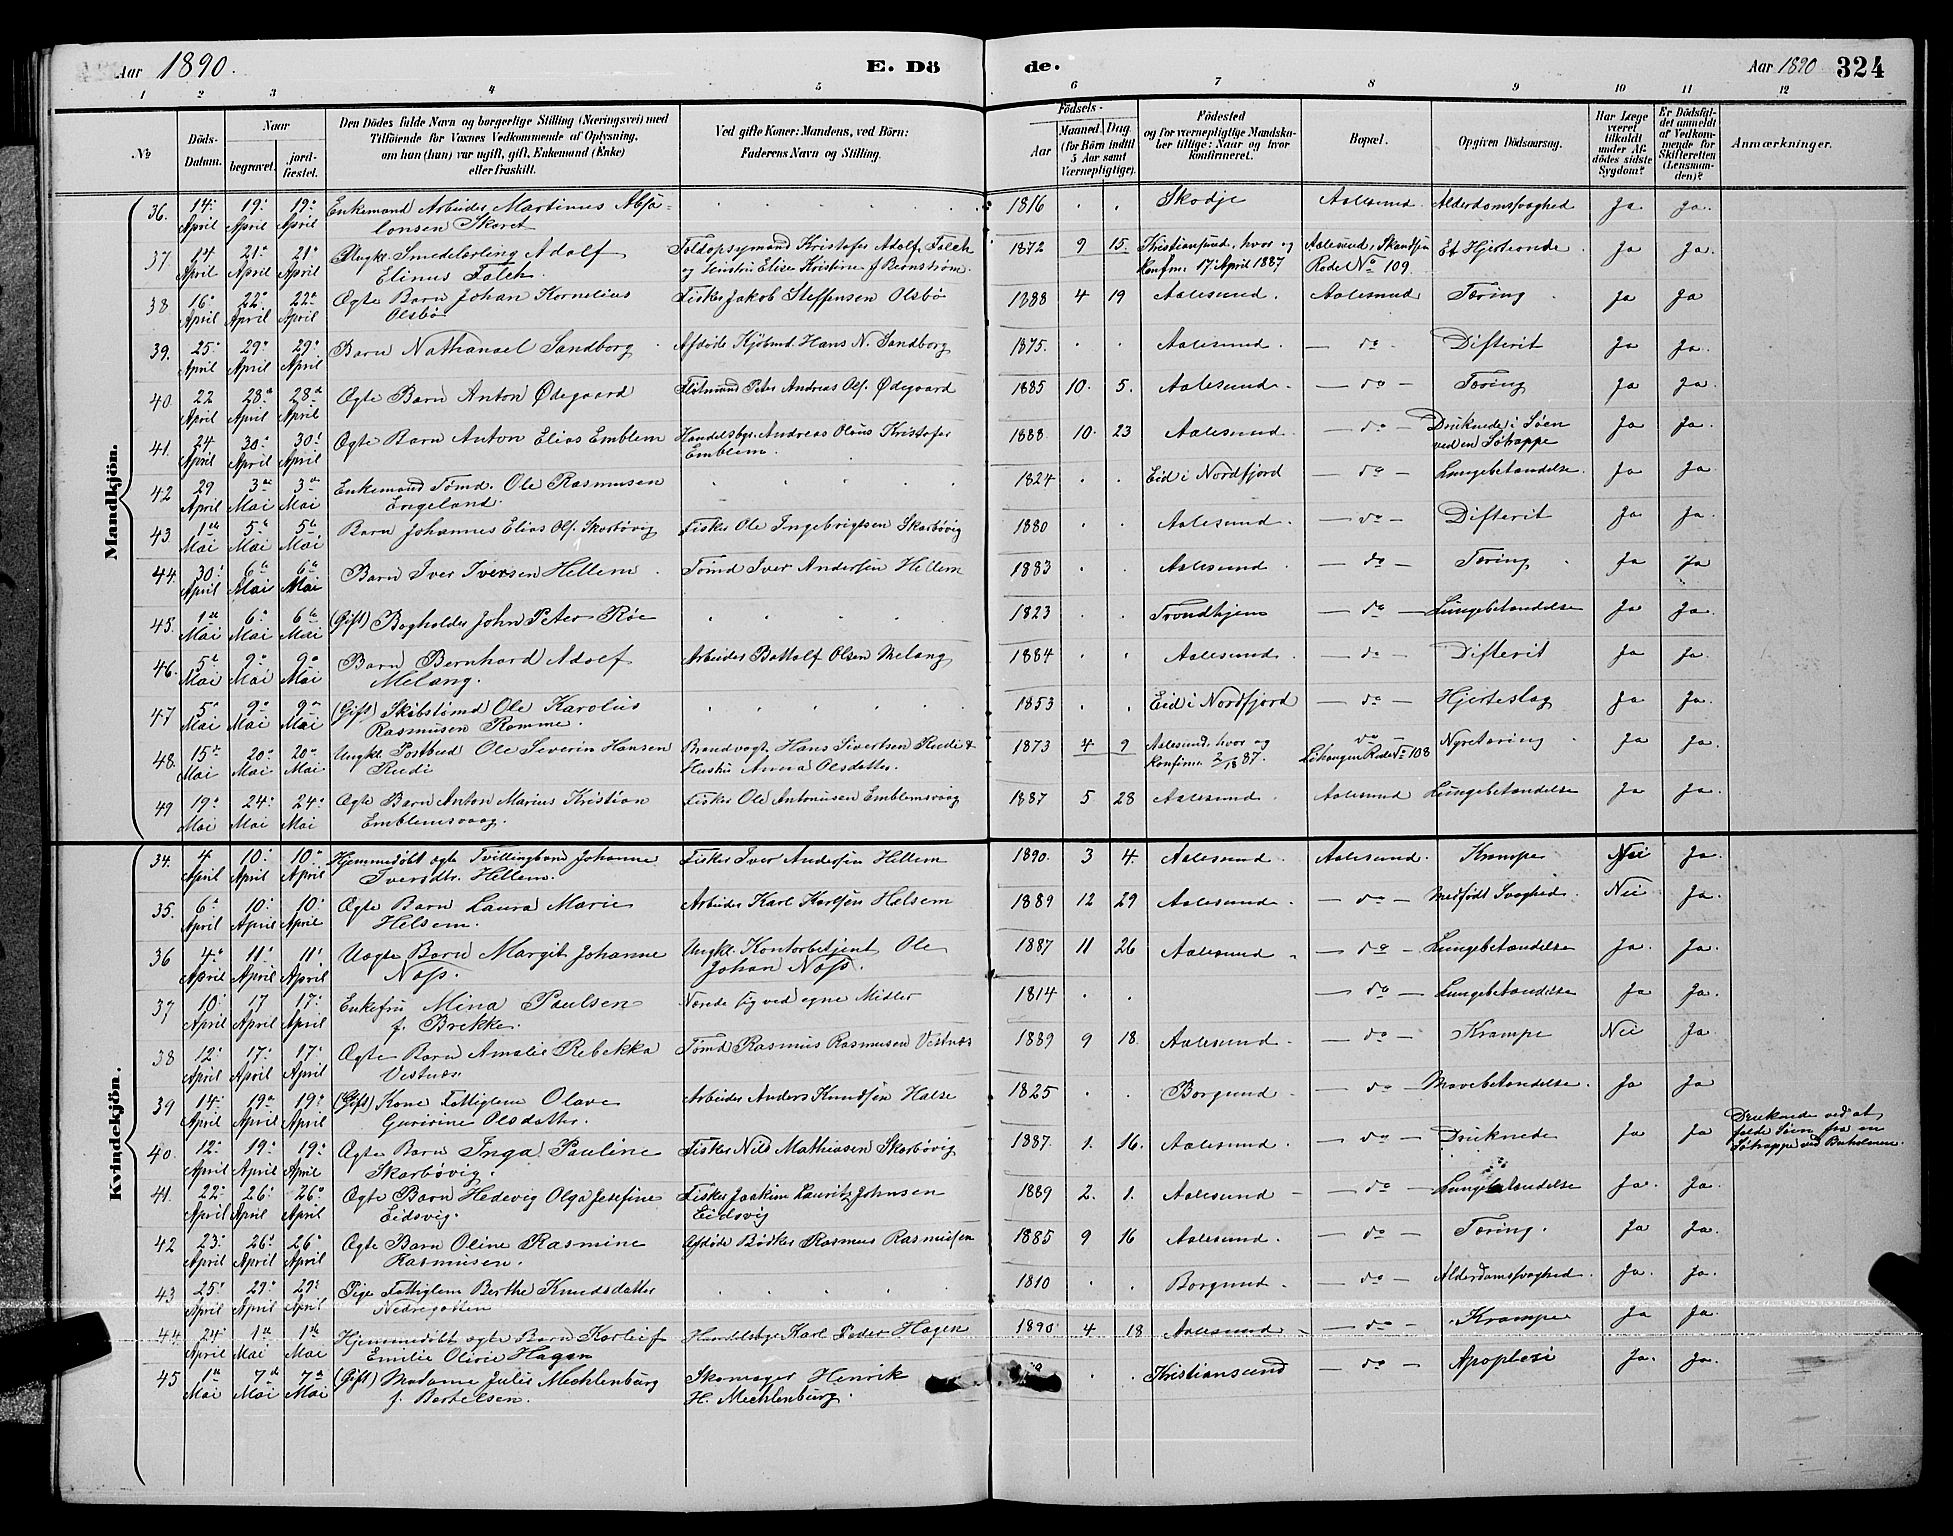 Aar 1890. E. Dö de. Aar 1890 324
1 2 3 4 5 6 7 8 9 10 11 12
No
Döds-Datum.
Naar
begravet.
jordfæstet.
Den Dödes fulde Navn og borgerlige Stilling (Næringsvei) med
Tilföiende for Voxnes Vedkommende af Oplysning,
om hun (han) var ugift, gift, Enkemand (Enke)
eller fraskilt.
Ved gifte Koner: Mandens, ved Börn:
Faderens Navn og Stilling.
Födsels-
Aar
Maaned. Dag.
(for Börn indtil
5 Aar samt
Værnepligtige).
Födested
og for værnepligtige Mandska-
ber tillige: Naar og hvor
konfirmeret.
Bopæl.
Opgiven Dödsaarsag.
Har Læge
været
tilkaldt
under Af-
dödes sidste
Sygdom?
Er Dödsfal-
det anmeldt
af Vedkom-
mende for
Skifteretten
(Lensman-
den)?
Anmærkninger.
Mandkjön.
36. 14. April 19. April 19. April Enkemand Arbeider Martinus Absa- 1816 Skodje Aalesund Alderdomssvaghed Ja Ja.
lonsen Skaret
37 14 April 21. April 21. April Ungkl. Smedelærling Adolf Toldopsynmand Kristofer Adolf Falch 1872 9 15 Kristiansund, hvor og Aalesund, Et Hjerteonde Ja Ja.
Elinus Falch. og Hustru Elise Kristine f. konfirm. 17 April 1887 Rode No 109.
38. 16. April 22. April 22. April Ægte Barn Johan Kornelius Fisker Jakob Steffensen Olsbö 1888 4 19 Aalesund. Aalesund Tæring Ja Ja
Olsbö
39. 25. April 29. April 29. April Barn Nathanael Sandborg Afdöde Kjöbmd. Hans N. Sandborg 1875. Aalesund. — do — Difterit Ja Ja.
40 22 April 28. April 28. April Ægte Barn Anton Ødegaard Peter Andreas Ols. Ødegaard 1885 10. 5. Aalesund. — do — Tæring Ja Ja.
41. 24. April 30. April 30. April Ægte Barn Anton Elias Emblem Handelsbgr. Andreas Olaus Kristofer 1888 10. 23 Aalesund. — do — Druknede i Søen Ja Ja.
Emblem. ved en Søtrappe
42 29 April 3. Mai 3. Mai Enkemand Tømd. Ole Rasmusen 1824 Eid i Nordfjord — do — Lungebetændelse. Ja Ja
Engeland.
43. 1. Mai 5. Mai 5. Mai Barn Johannes Elias Ols. Skarbövig Fisker Ole Ingebrigtsen Skarbövig 1880 Aalesund. — do — Difterit Ja Ja.
44. 30. April 6. Mai 6. Mai Barn Iver Iversen Hellem Tømd Iver Andersen Hellem 1883 Aalesund. — do — Tæring Ja Ja
45. 1. Mai 6. Mai 6. Mai (Gift) Bogholder John Peter Röe 1823 Trondhjem — do — Lungebetændelse Ja Ja.
46. 5. Mai 9. Mai 9. Mai Barn Bernhard Adolf Arbeider Bottolf Olsen Melang 1884 Aalesund. — do — Difterit Ja Ja.
Melang.
47 5. Mai 9. Mai 9. Mai (Gift) Skibstømd Ole Karolius 1853 Eid i Nordfjord — do — Hjerteslag Ja Ja.
Rasmusen Romme.
48. 15. Mai 20. Mai 20. Mai Ungkl. Postbud Ole Severin Hansen Brandvagt. Hans Sivertsen Rudi & 1873 4 9 Aalesund, hvor og — do — Nyretæring Ja Ja.
Rudi Hustru Anna Olsdatter. konfirm. 2/10 87. Rode No 108
49 19. Mai 24. Mai 24. Mai Ægte Barn Anton Marius Kristian Fisker Ole Antonusen Emblemsvaag 1887 5 28 Aalesund Aalesund Lungebetændelse Ja Ja.
Emblemsvaag.
Kvindekjön.
34. 4 April 10. April 10. April Hjemmedöbt ægte Tvillingbarn Johanne Fisker Iver Andersen Hellem 1890. 3 4. Aalesund. Aalesund. Krampe Nei Ja.
Iversdtr. Hellem.
35. 6. April 10. April 10. April Ægte Barn Laura Marie Arbeider Karl Karlsen Helsem 1889 12 29 Aalesund. — do — Medfödt Svaghed. Nei Ja.
Helsem.
36 4. April 11. April 11. April Uægte Barn Margit Johanne Ungkl. Kontorbetjent Ole 1887 11 26 Aalesund. — do — Lungebetændelse Ja. Ja.
Nass. Johan Nass.
37 10. April 17 April 17. April Enkefru Mina Paulsen Nærede sig ved egne Midler 1814 — do — Lungebetændelse Ja Ja.
f. Brekke.
38 12. April 17. April 17. April Ægte Barn Amalie Rebekka Tømd Rasmus Rasmusen Vestnæs 1889 9 18. Aalesund. — do — Krampe Nei Ja
Vestnæs
39 14. April 19. April 19. April (Gift) Kone Fattiglem Olave Arbeider Anders Knudsen Halse 1825 Borgund. — do — Mavebetændelse. Ja Ja
Gurine Olsdatter.
40. 12. April 19. April 19. April Ægte Barn Inga Pauline Fisker Nils Mathiasen Skarbövig 1887. 1. 16. Aalesund. — do — Druknede Ja Ja Druknede ved at
Skarbövig. falde i Søen fra en
Søtrappe ved Buholmen.
41. 22. April 26. April 26. April Ægte Barn Hedevig Olga Josefine Fisker Joakim Lauritz Johnsen 1889 2. 1. Aalesund — do — Lungebetændelse Ja. Ja.
Eidsvig. Eidsvig
42 23. April 26. April 26. April Ægte Barn Oline Rasmine Afdöde Bödker Rasmus Rasmusen 1885 9 16 Aalesund. — do — Tæring. Ja Ja.
Rasmusen.
43 25. April 29. April 29. April Pige Fattiglem Berthe Knudsdatter 1810 Borgund. — do — Alderdomssvaghed. Ja. Ja.
Nedregotten
44. 24. April 1. Mai 1. Mai Hjemmedöbt ægte Barn Handelsbgr. Karl Peder Hagen 1890. 4 18 Aalesund — do — Krampe Ja Ja.
Emilie Olivie Hagen
45 1. Mai 7. Mai 7. Mai (Gift) Madame Julie Mechlenburg Skomager Henrik Kristiansund — do — Apoplexi Ja. Ja.
f. Bertelsen. H. Mechlenburg.